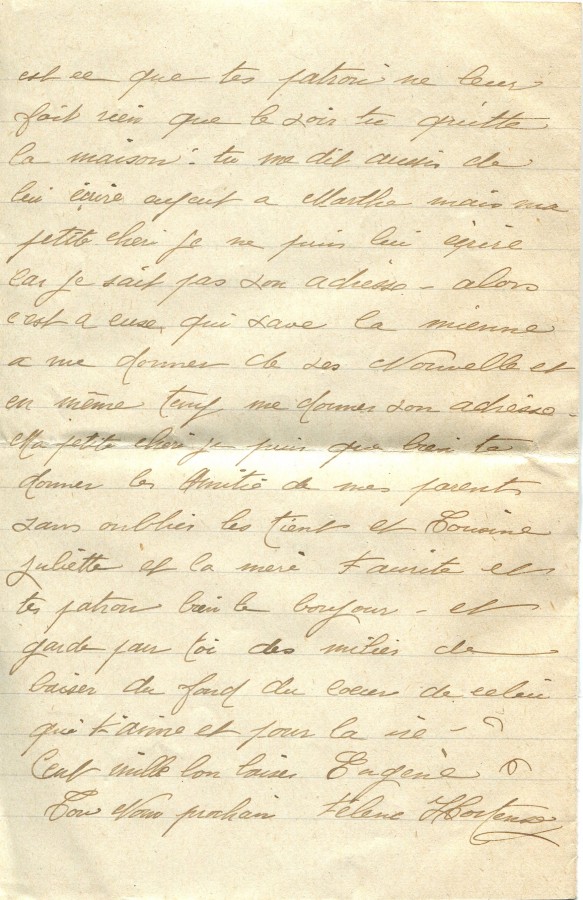 est ce que tes patron ne leur
fait rien que le soir tu quitte
la maison. tu me dit aussi de
lui écrire a Marthe mais ma
petite cheri je ne puis lui écrire
car je sait pas son adresse - alors
c'est a euse qui save la mienne
a me donner de ses Nouvelle et
en même temp me donner son adresse -
Ma petite cheri je puis que bien te
donner les Amitié de mes parents
sans oublier les tient et Cousine
Juliette et la mere et
tes patron bien le bonjour - et
garde par toi des milier de
baiser du fond du coeur de celui
qui t'aime et pour la vie -
Cent mille bon baiser Eugène
Ton Nom prochain Hortense